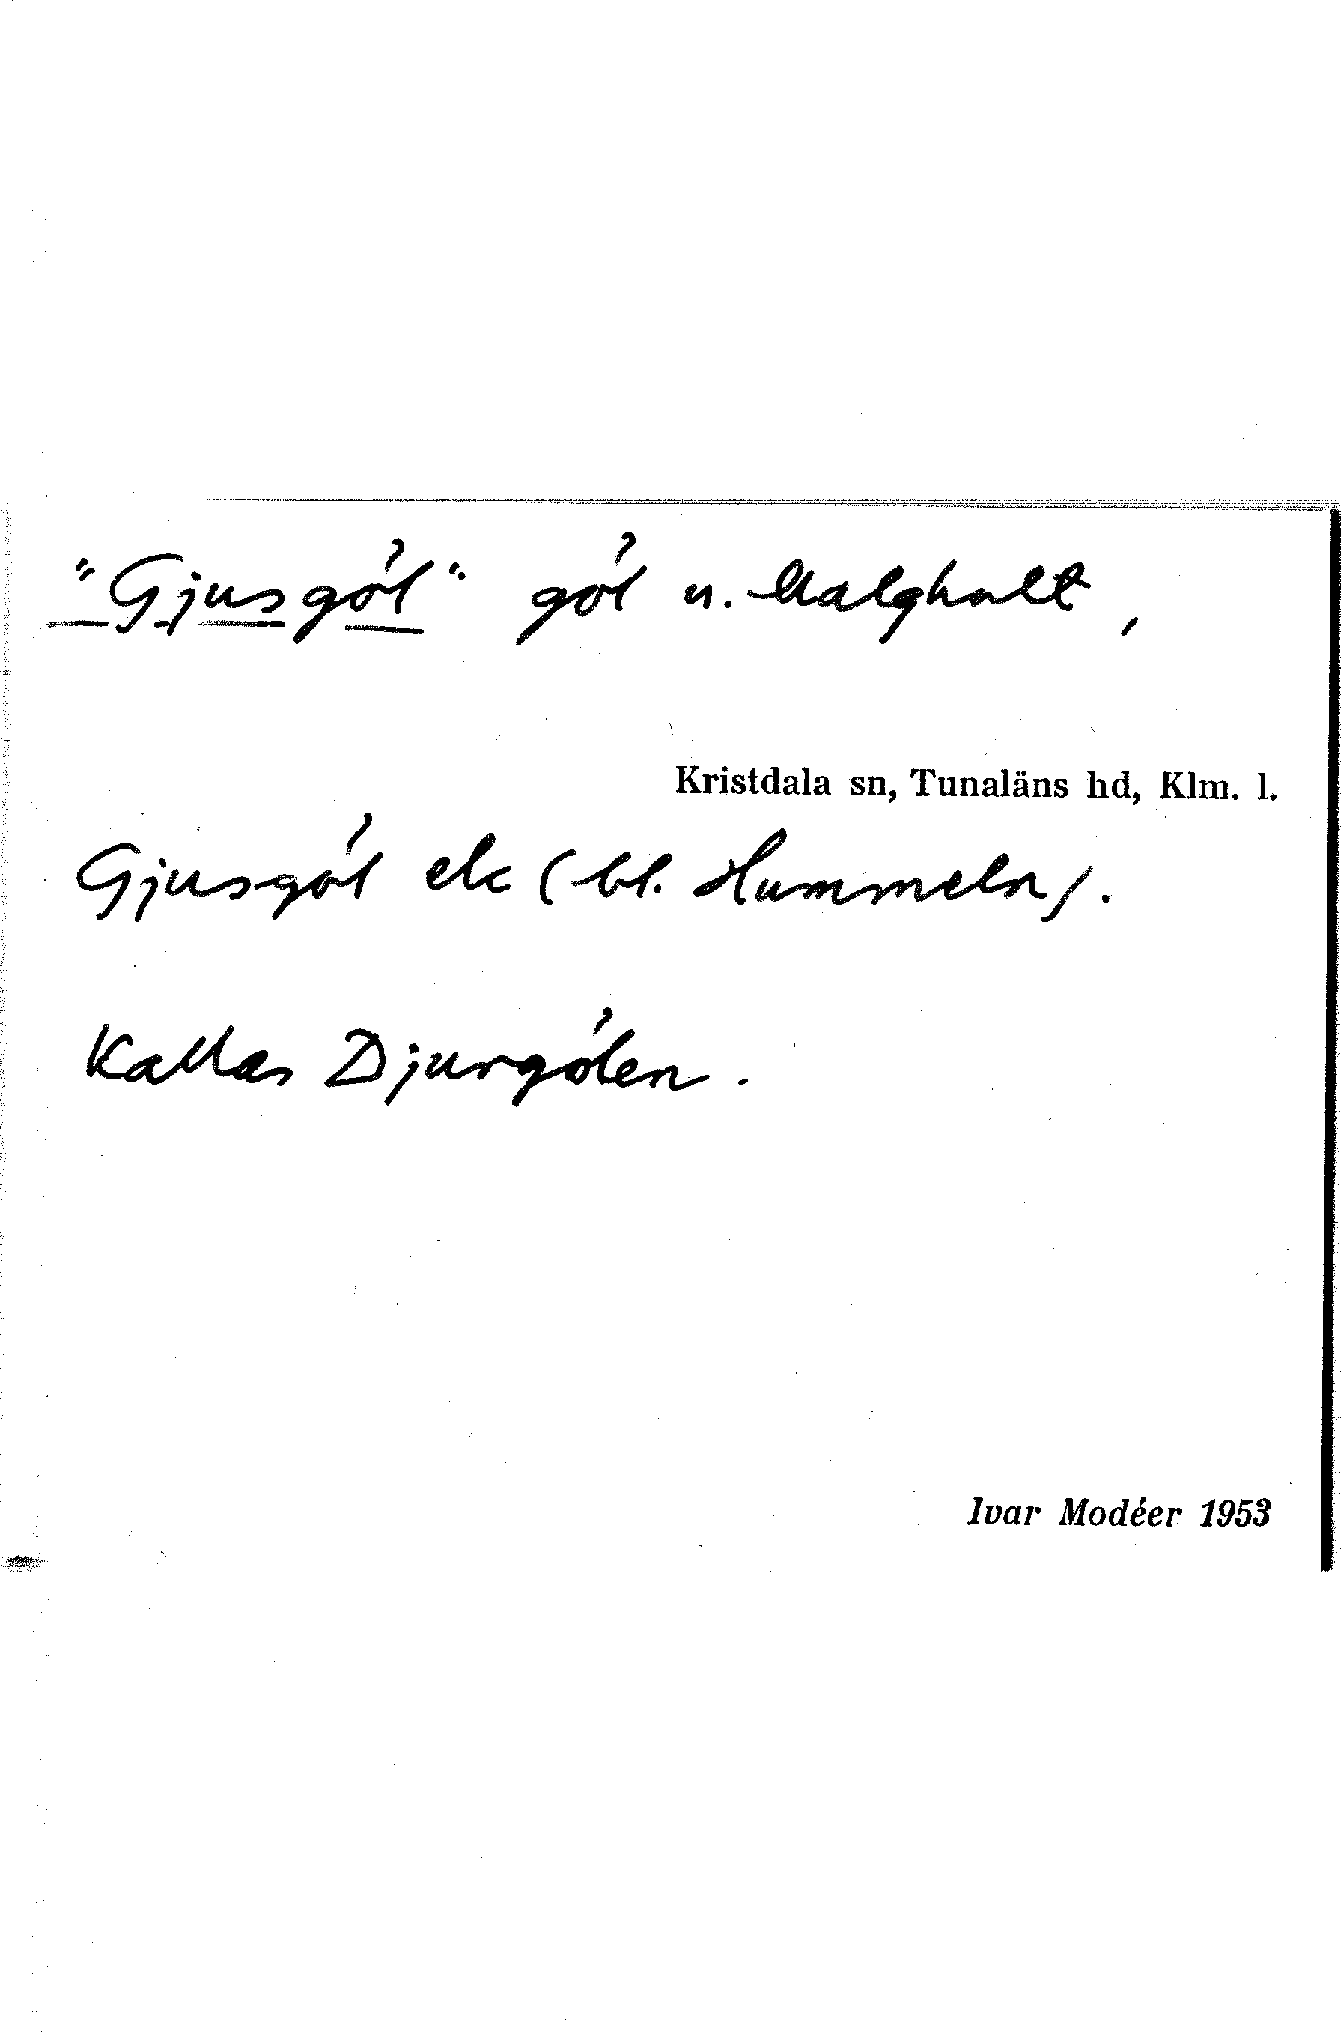 "Gjusgöl" göl u. Malghult,
Kristdala sn, Tunaläns hd, Klm. l.
Gjusgöl ek (bl. Hummeln).
Kallas Djurgölen.
Ivar Modéer 1953